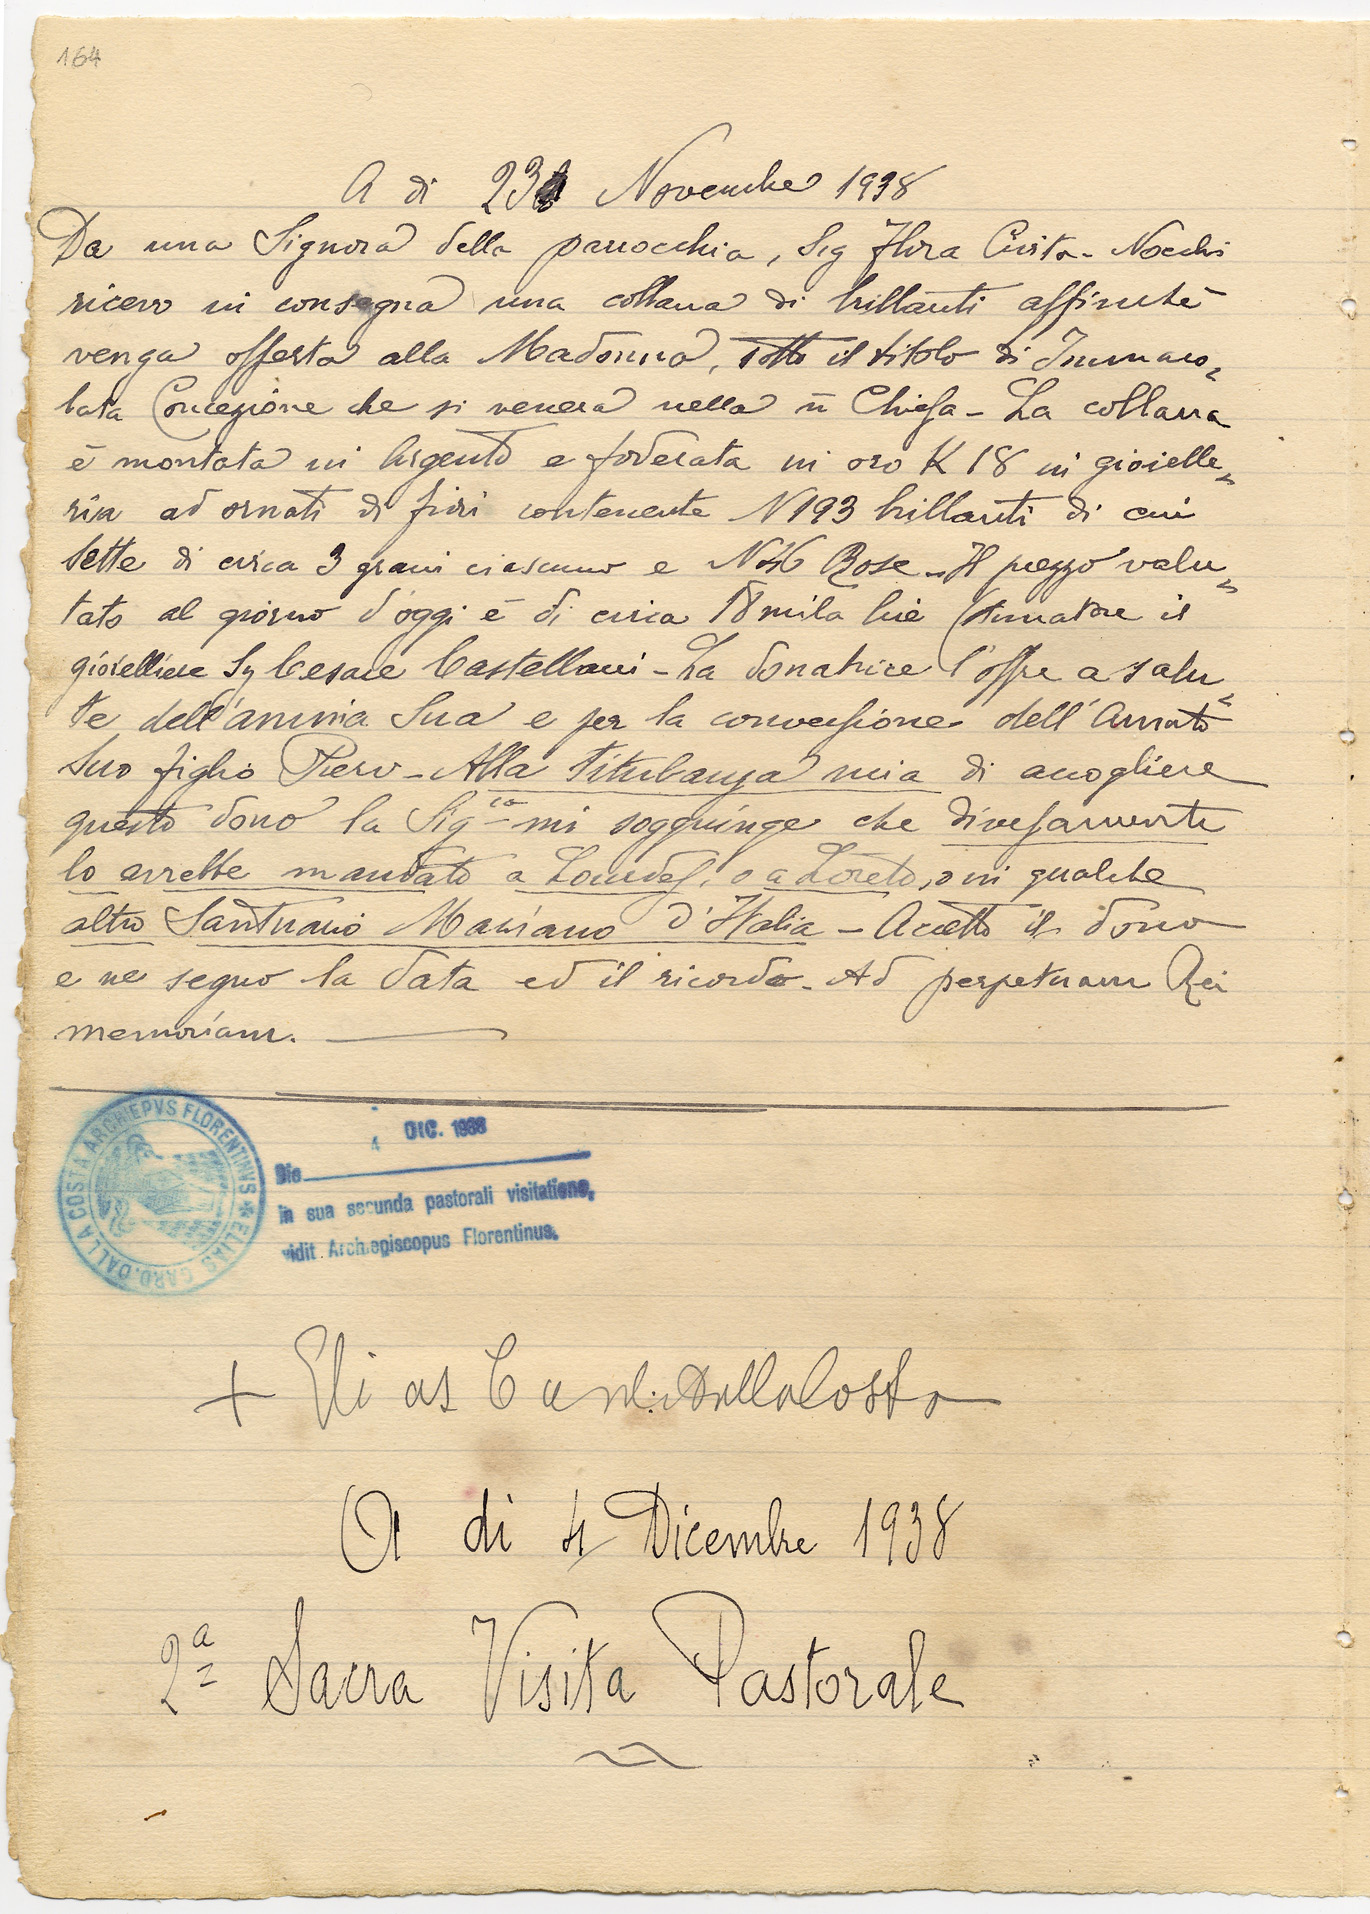 164
A di 23 Novembre 1938
Da una Signora della parrocchia, Sig Flora Civita-Nocchi
ricevo in consegna una collana di brillanti affinchè
venga offerta alla Madonna, sotto il titolo di Immaco„
lata Concezione che si venera nella n̄ Chiesa - La collana
è montata in Argento e foderata in oro K 18 in gioielle„
ria ad ornati di fiori contenente N 193 brillanti di cui
sette di circa 3 grani ciascuno e N Rose - Il prezzo valu„
tato al giorno d'oggi è di circa 18 mila lire stimatore il
gioielliere Sig Cesare Castellani - La donatrice l'offre a salu„
te dell'anima Sua e per la conversione dell'Amato
Suo figlio Piero - Alla titubanza mia di accogliere
questo dono la Sig.ra mi soggiunge che diversamente
lo avrebbe mandato a Lourdes, o a Loreto, o in qualche
altro Santuario Mariano d'Italia - Accetto il dono
e ne segno la data ed il ricordo - Ad perpetuam Rei
memoriam.
ELIAS CARD. DALLA COSTA ARCHIEPVS FLORENTINVS
4 DIC. 1938
Die
in sua secunda pastorali visitatione,
vidit Archiepiscopus Florentinus.
+ Elias Card. Dalla Costa
A di 4 Dicembre 1938
2ª Sacra Visita Pastorale